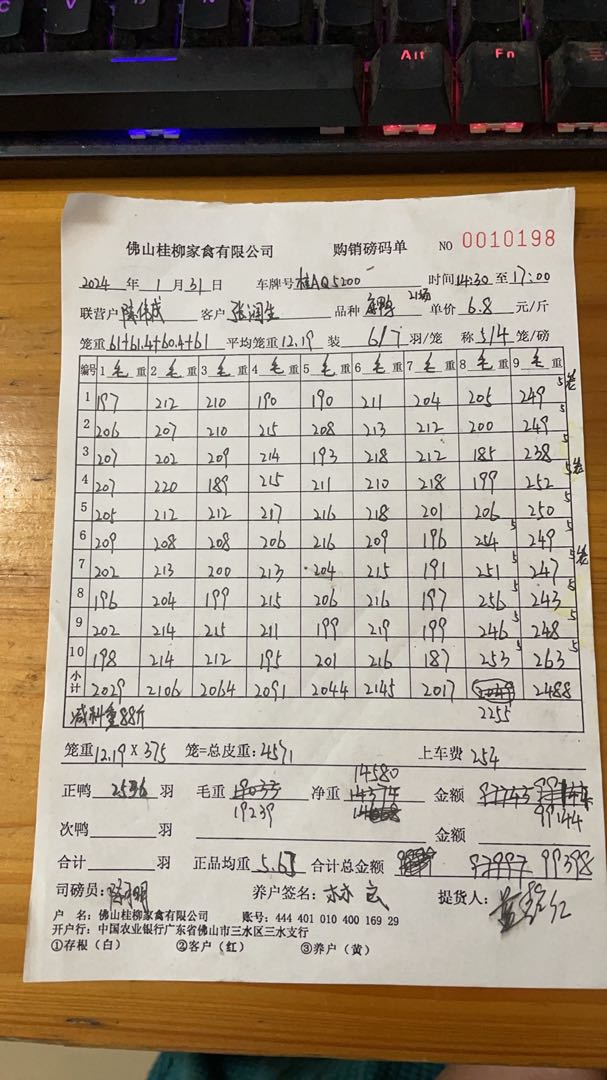 C V Alt Fn
佛山桂柳家禽有限公司 购销磅码单 NO 0010198
2024 年 1 月 31 日 车牌号 桂AQ5200 时间 14:30 至 17:00
联营户 陈伟成 客户 张润生 品种 21场 单价 6.8 元/斤
笼重 61+61.4+60.4+61 平均笼重 12.19 装 6/7 羽/笼 称 5/4 笼/磅
编号 1 毛 重 2 毛 重 3 毛 重 4 毛 重 5 毛 重 6 毛 重 7 毛 重 8 毛 重 9 毛 重
1 197 212 210 190 190 211 204 205 249 5笼
2 206 207 210 215 208 213 212 200 249 5
3 207 202 209 214 193 218 212 185 238 5
4 207 220 189 215 211 210 218 199 252 5笼
5 205 212 212 217 216 218 201 206 250 5
6 209 208 208 206 216 209 196 254 5 249 5
7 202 213 200 213 204 215 191 251 5 247 5笼
8 196 204 199 215 206 216 197 256 5 243 5
9 202 214 215 211 199 219 199 246 5 248 5
10 198 214 212 195 201 216 187 253 5 263 5
小计 2029 2106 2064 2091 2044 2145 2017 2049 2488
减料重88斤 2255
笼重 12.19×375 笼=总皮重: 4571 上车费 254
14580
正鸭 2536 羽 毛重 19033 净重 14374 金额 97743
19239 99144
次鸭 羽 金额
合计 羽 正品均重 5.63 合计总金额 97997 99398
司磅员: 养户签名: 提货人:
户 名: 佛山桂柳家禽有限公司 账号: 444 401 010 400 169 29
开户行: 中国农业银行广东省佛山市三水区三水支行
①存根（白） ②客户（红） ③养户（黄）